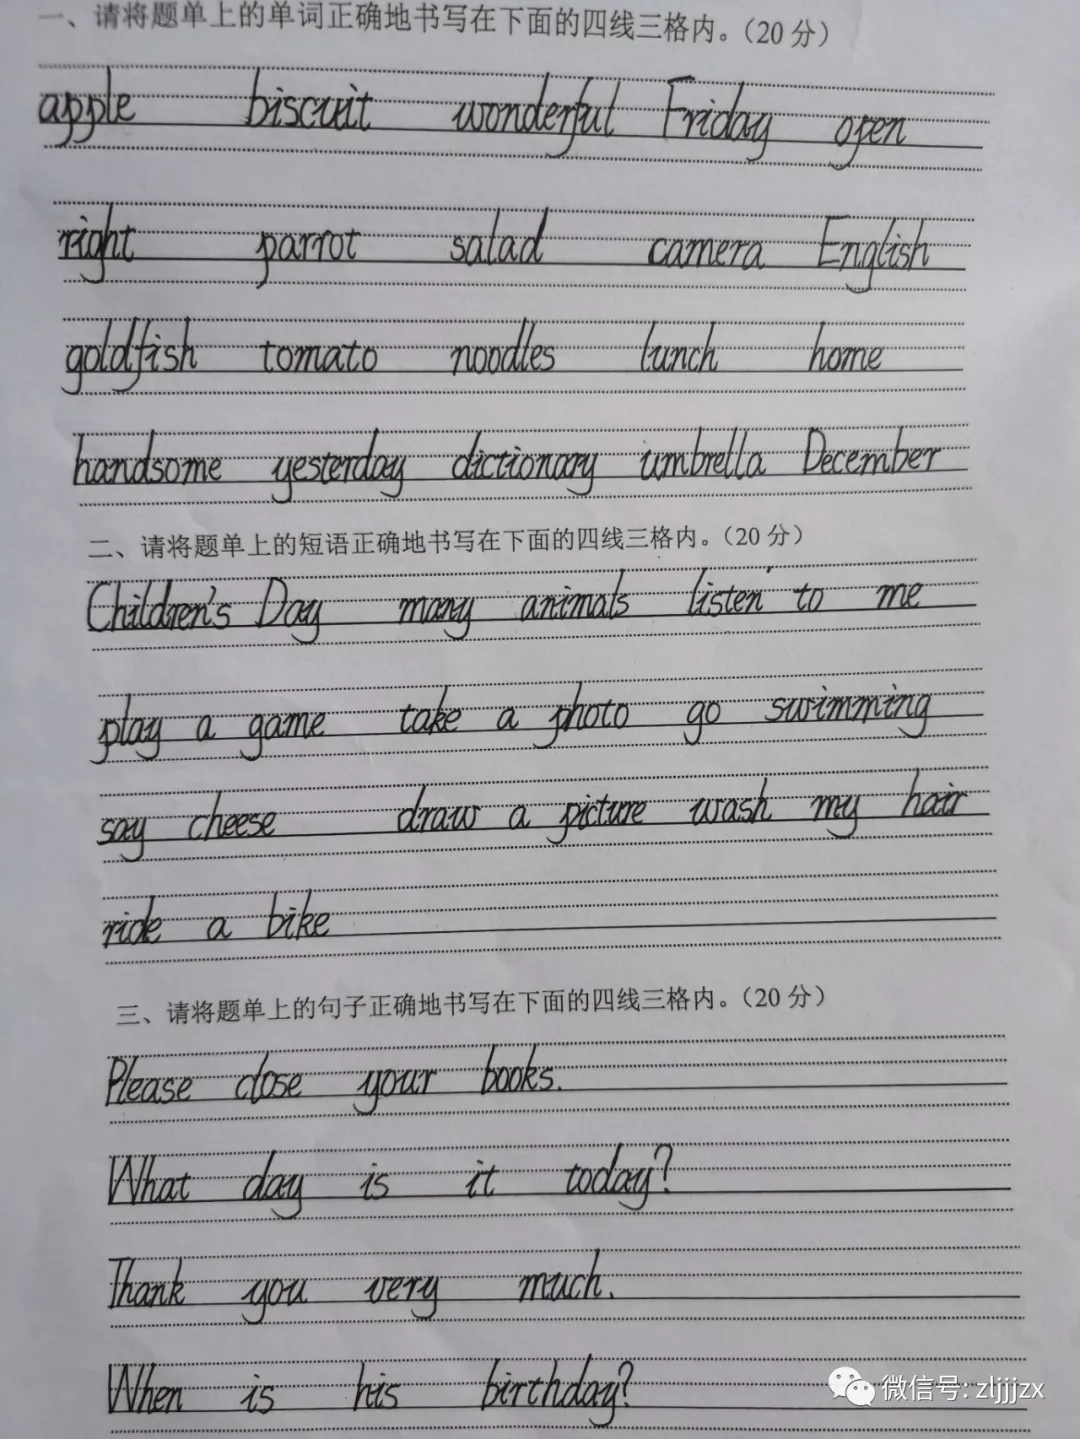 一、请将题单上的单词正确地书写在下面的四线三格内。（20 分）
apple biscuit wonderful Friday open
right parrot salad camera English
goldfish tomato noodles lunch home
handsome yesterday dictionary umbrella December
二、请将题单上的短语正确地书写在下面的四线三格内。（20 分）
Children's Day many animals listen to me
play a game take a photo go swimming
say cheese draw a picture wash my hair
ride a bike
三、请将题单上的句子正确地书写在下面的四线三格内。（20 分）
Please close your books.
What day is it today?
Thank you very much.
When is his birthday?
微信号: zljjjzx